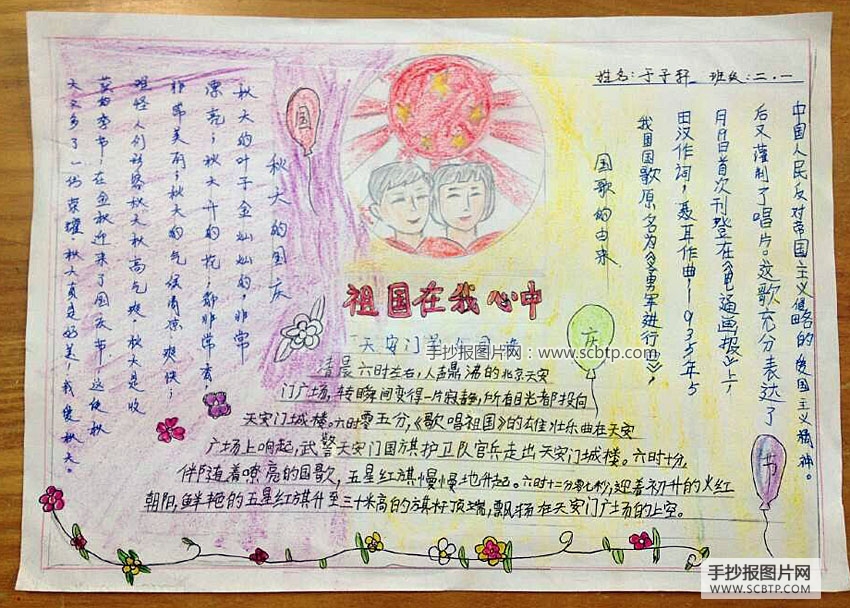 姓名:于子轩 班级:二.一
秋天的国庆
秋天的叶子金灿灿的,非常
漂亮;秋天开的花,都非常香,
非常美丽;秋天的气候清凉爽快;
难怪人们形容秋天秋高气爽。秋天是收
获的季节,在金秋迎来了国庆节,这使秋
天又多了一份荣耀。秋天真是好美,我爱秋天。
国
祖国在我心中
国歌的由来
我国国歌原名为《义勇军进行》,
田汉作词,聂耳作曲,1935年5
月9日首次刊登在《电通画报》上,
后又灌制了唱片。这歌充分表达了
中国人民反对帝国主义侵略的爱国主义精神。
庆
节
天安门
手抄报图片网:www.scbtp.com
清晨六时左右,人声鼎沸的北京天安
门广场,转瞬间变得一片寂静,所有目光都投向
天安门城楼。六时零五分,《歌唱祖国》的雄壮乐曲在天安
广场上响起,武警天安门国旗护卫队官兵走出天安门城楼。六时十分,
伴随着嘹亮的国歌,五星红旗慢慢地升起。六时十二分零七秒,迎着初升的火红
朝阳,鲜艳的五星红旗升至三十米高的旗杆顶端,飘扬在天安门广场的上空。
手抄报图片网
WWW.SCBTP.COM